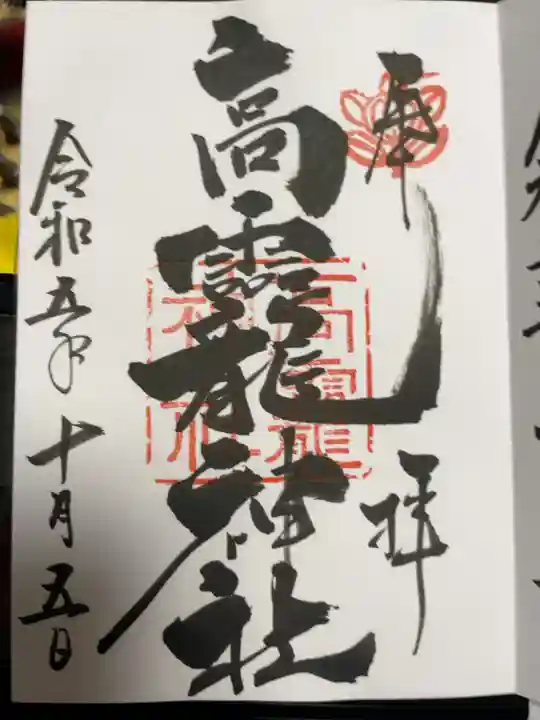 奉拝
高龗神社
高龗神社
令和五年十月五日